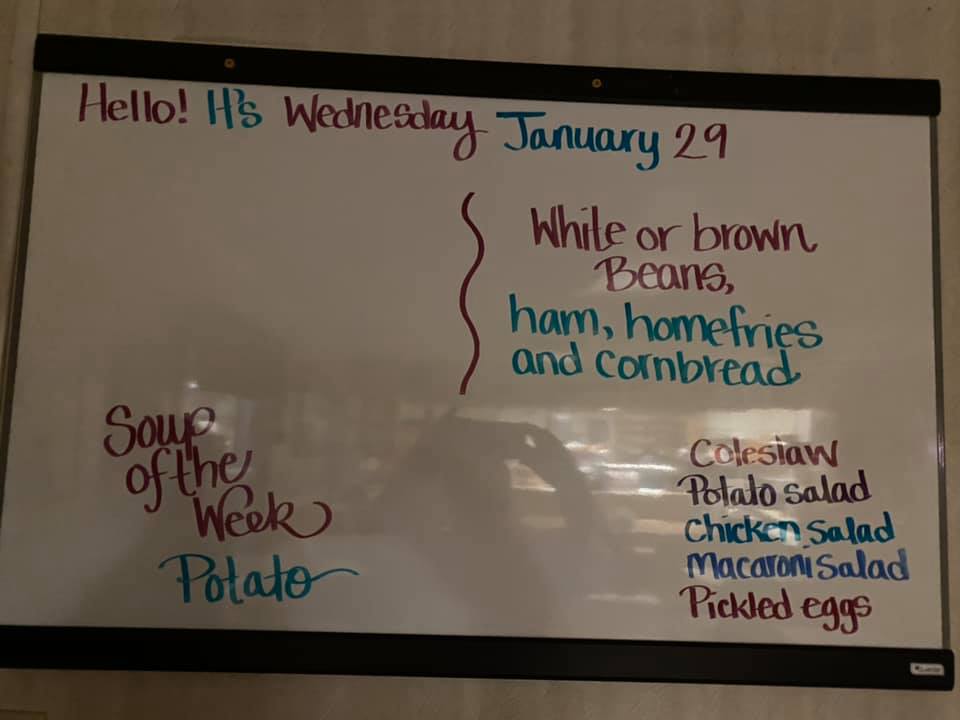 Hello! It's Wednesday January 29
White or brown
Beans,
ham, homefries
and Cornbread
Soup
of the
Week
Potato
Coleslaw
Potato salad
Chicken Salad
Macaroni Salad
Pickled eggs